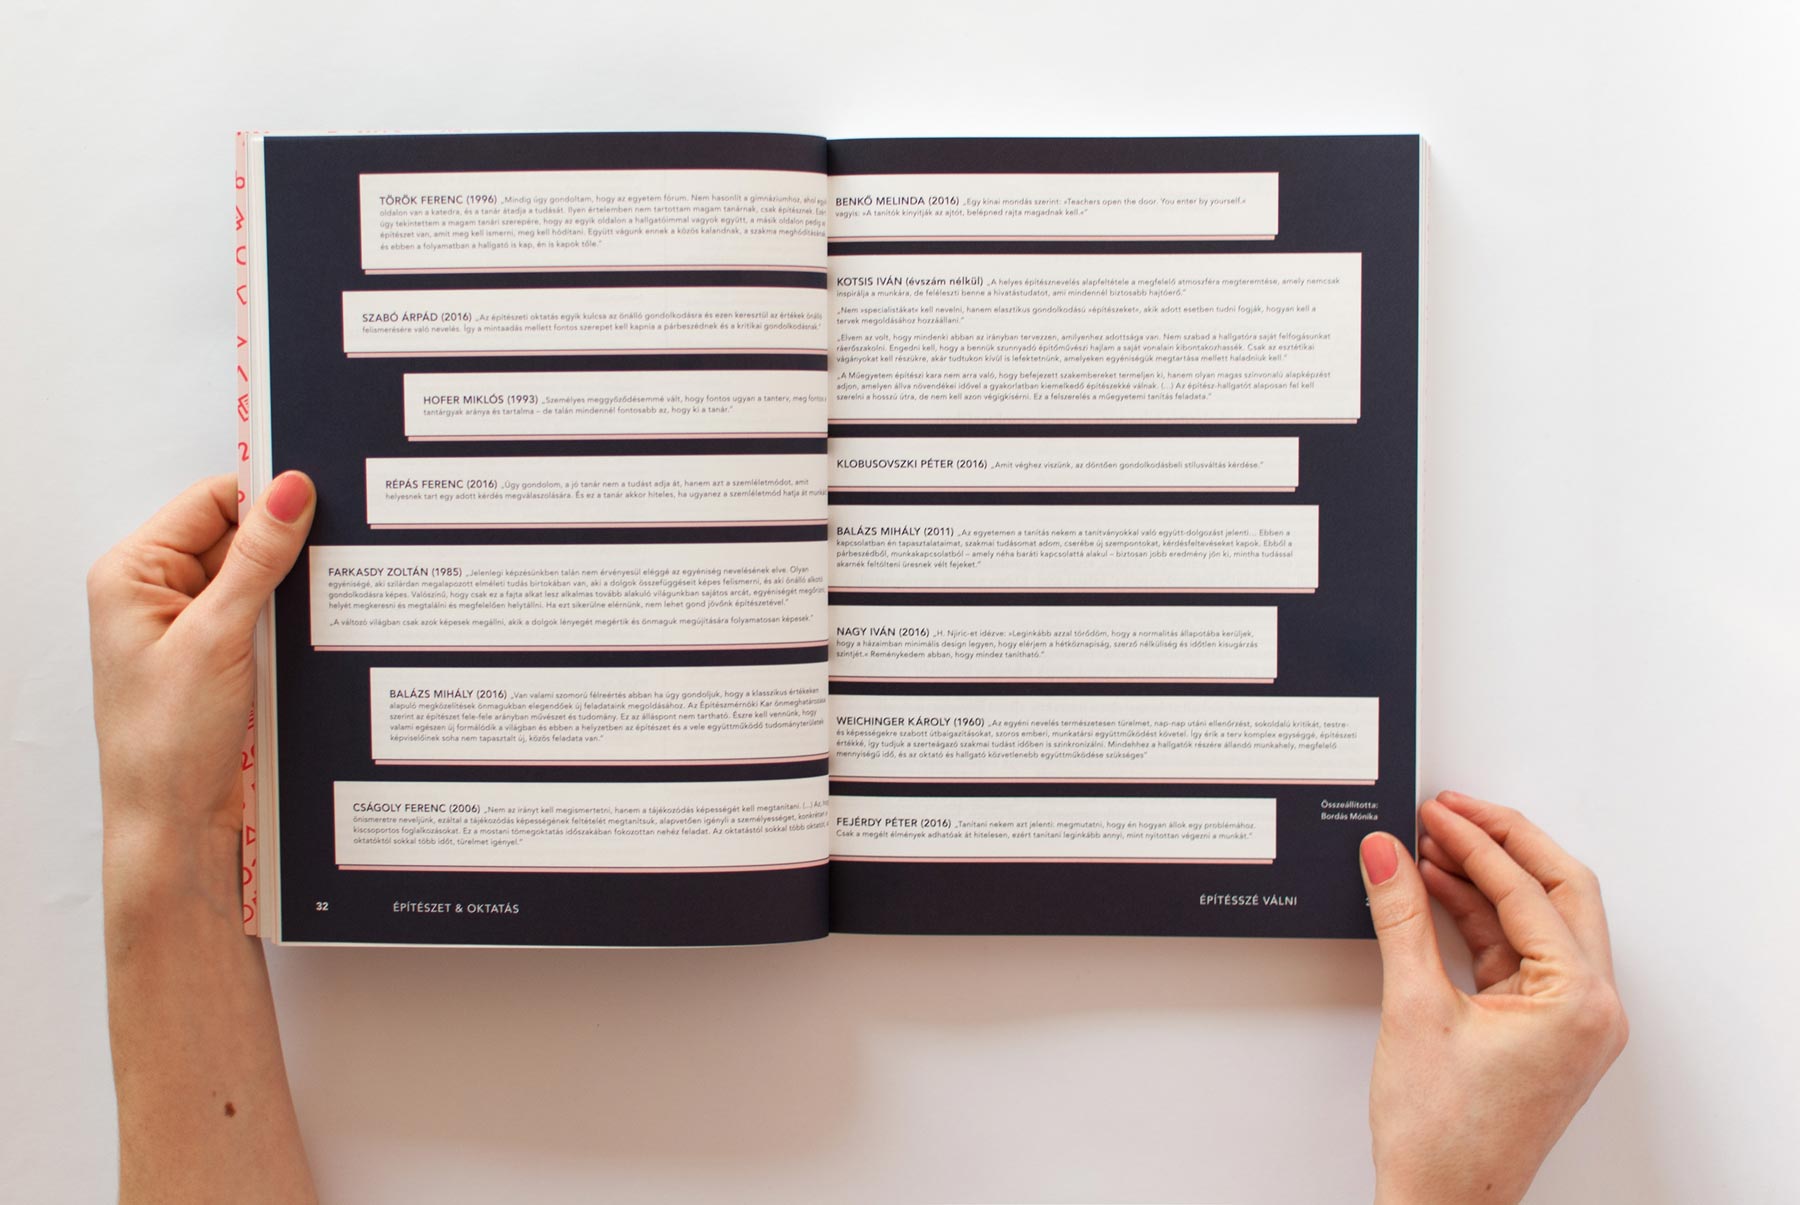 TÖRÖK FERENC (1996) „Mindig úgy gondoltam, hogy az egyetem fórum. Nem hasonlít a gimnáziumhoz, ahol
oldalon van a katedra, és a tanár átadja a tudását. Ilyen értelemben nem tartottam magam tanárnak, csak építésznek.
úgy tekintettem a magam tanári szerepére, hogy az egyik oldalon a hallgatóimmal vagyok együtt, a másik oldalon pedig
építészet van, amit meg kell ismerni, meg kell hódítani. Együtt vágunk ennek a közös kalandnak, a szakma
és ebben a folyamatban a hallgató is kap, én is kapok tőle.”
SZABÓ ÁRPÁD (2016) „Az építészeti oktatás egyik kulcsa az önálló gondolkodásra és ezen keresztül az értékek önálló
felismerésére való nevelés. Így a mintaadás mellett fontos szerepet kell kapnia a párbeszédnek és a kritikai gondolkodásnak”
HOFER MIKLÓS (1993) „Személyes meggyőződésemmé vált, hogy fontos ugyan a tanterv, meg fontos
tantárgyak aránya és tartalma – de talán mindennél fontosabb az, hogy ki a tanár.”
RÉPÁS FERENC (2016) „Úgy gondolom, a jó tanár nem a tudást adja át, hanem azt a szemléletmódot, amit
helyesnek tart egy adott kérdés megválaszolására. És ez a tanár akkor hiteles, ha ugyanez a szemléletmód hatja át
FARKASDY ZOLTÁN (1985) „Jelenlegi képzésünkben talán nem érvényesül eléggé az egyéniség nevelésének elve. Olyan
egyéniségé, aki szilárdan megalapozott elméleti tudás birtokában van, aki a dolgok összefüggéseit képes felismerni, és aki önálló alkotó
gondolkodásra képes. Valószínű, hogy csak ez a fajta alkat lesz alkalmas tovább alakuló világunkban sajátos arcát, egyéniségét megőrizni,
helyét megkeresni és megtalálni és megfelelően helytállni. Ha ezt sikerülne elérnünk, nem lehet gond jövőnk építészetével.”
„A változó világban csak azok képesek megállni, akik a dolgok lényegét megértik és önmaguk megújítására folyamatosan képesek.”
BALÁZS MIHÁLY (2016) „Van valami szomorú félreértés abban ha úgy gondoljuk, hogy a klasszikus értékeken
alapuló megközelítések önmagukban elegendőek új feladataink megoldásához. Az Építészmérnöki Kar önmeghatározása
szerint az építészet fele-fele arányban művészet és tudomány. Ez az álláspont nem tartható. Észre kell vennünk, hogy
valami egészen új formálódik a világban és ebben a helyzetben az építészet és a vele együttműködő tudományterületek
képviselőinek soha nem tapasztalt új, közös feladata van.”
CSÁGOLY FERENC (2006) „Nem az irányt kell megismertetni, hanem a tájékozódás képességét kell megtanítani. (...) Az,
önismeretre neveljünk, ezáltal a tájékozódás képességének feltételét megtanítsuk, alapvetően igényli a személyességet, konkrétan
kiscsoportos foglalkozásokat. Ez a mostani tömegoktatás időszakában fokozottan nehéz feladat. Az oktatástól sokkal több
oktatóktól sokkal több időt, türelmet igényel.”
32
ÉPÍTÉSZET & OKTATÁS
BENKŐ MELINDA (2016) „Egy kínai mondás szerint: »Teachers open the door. You enter by yourself.«
vagyis: »A tanítók kinyitják az ajtót, belépned rajta magadnak kell.«”
KOTSIS IVÁN (évszám nélkül) „A helyes építésznevelés alapfeltétele a megfelelő atmoszféra megteremtése, amely nemcsak
inspirálja a munkára, de feléleszti benne a hivatástudatot, ami mindennél biztosabb hajtóerő.”
„Nem »specialistákat« kell nevelni, hanem elasztikus gondolkodású »építészeket«, akik adott esetben tudni fogják, hogyan kell a
tervek megoldásához hozzáállani.”
„Elvem az volt, hogy mindenki abban az irányban tervezzen, amilyenhez adottsága van. Nem szabad a hallgatóra saját felfogásunkat
ráerőszakolni. Engedni kell, hogy a bennük szunnyadó építőművészi hajlam a saját vonalain kibontakozhassék. Csak az esztétikai
vágányokat kell részükre, akár tudtukon kívül is lefektetnünk, amelyeken egyéniségük megtartása mellett haladniuk kell.”
„A Műegyetem építészi kara nem arra való, hogy befejezett szakembereket termeljen ki, hanem olyan magas színvonalú alapképzést
adjon, amelyen állva növendékei idővel a gyakorlatban kiemelkedő építészekké válnak. (...) Az építész-hallgatót alaposan fel kell
szerelni a hosszú útra, de nem kell azon végigkísérni. Ez a felszerelés a műegyetemi tanítás feladata.”
KLOBUSOVSZKI PÉTER (2016) „Amit véghez viszünk, az döntően gondolkodásbeli stílusváltás kérdése.”
BALÁZS MIHÁLY (2011) „Az egyetemen a tanítás nekem a tanítványokkal való együtt-dolgozást jelenti... Ebben a
kapcsolatban én tapasztalataimat, szakmai tudásomat adom, cserébe új szempontokat, kérdésfeltevéseket kapok. Ebből a
párbeszédből, munkakapcsolatból – amely néha baráti kapcsolattá alakul – biztosan jobb eredmény jön ki, mintha tudással
akarnék feltölteni üresnek vélt fejeket.”
NAGY IVÁN (2016) „H. Njiric-et idézve: »Leginkább azzal törődöm, hogy a normalitás állapotába kerüljek,
hogy a házaimban minimális design legyen, hogy elérjem a hétköznapiság, szerző nélküliség és időtlen kisugárzás
szintjét.« Reménykedem abban, hogy mindez tanítható.”
WEICHINGER KÁROLY (1960) „Az egyéni nevelés természetesen türelmet, nap-nap utáni ellenőrzést, sokoldalú kritikát, testre-
és képességekre szabott útbaigazításokat, szoros emberi, munkatársi együttműködést követel. Így érik a terv komplex egységgé, építészeti
értékké, így tudjuk a szerteágazó szakmai tudást időben is szinkronizálni. Mindehhez a hallgatók részére állandó munkahely, megfelelő
mennyiségű idő, és az oktató és hallgató közvetlenebb együttműködése szükséges”
FEJÉRDY PÉTER (2016) „Tanítani nekem azt jelenti: megmutatni, hogy én hogyan állok egy problémához.
Csak a megélt élmények adhatóak át hitelesen, ezért tanítani leginkább annyi, mint nyitottan végezni a munkát.”
Összeállította:
Bordás Mónika
ÉPÍTÉSSZÉ VÁLNI